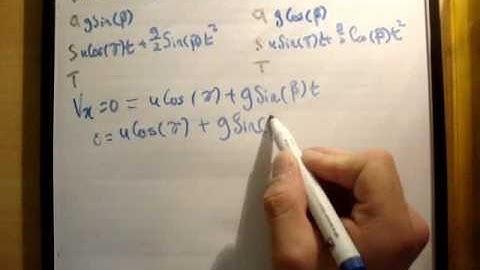 a gSin(β) a gCos(β)
S uCos(γ)t + g/2 Sin(β)t² S uSin(γ)t + g/2 Cos(β)t²
T T
Vx=0 = uCos(γ) + gSin(β)t
0=uCos(γ) + gSin(